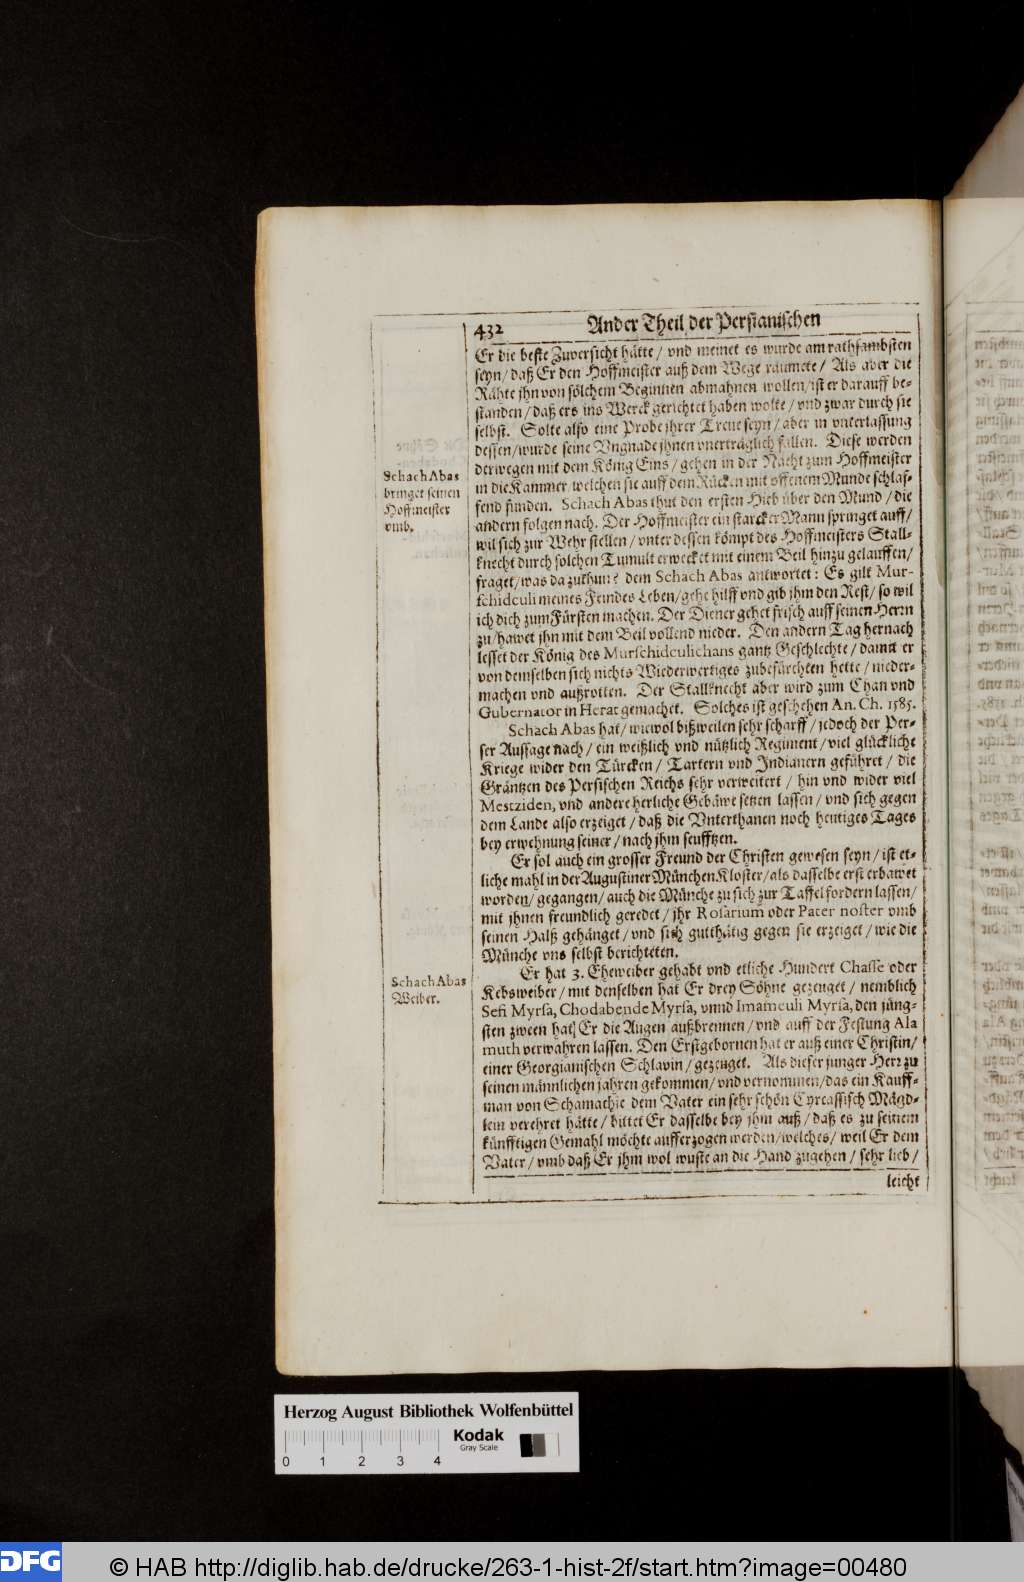 432 Ander Theil der Persianischen
Er die beste Zuversicht hätte / vnd meinet es wurde am rathsambsten
seyn / daß Er den Hoffmeister auß dem Wege räumete / Als aber die
Rähte jhn von solchem Beginnen abmahnen wollen / ist er darauff be-
standen / daß ers ins Werck gerichtet haben wolte / vnd zwar durch sie
selbst. Solte also eine Probe jhrer Treue seyn / aber in vnterlassung
dessen / wurde seine Vngnade jhnen vnerträglich fallen. Diese werden
derwegen mit dem König Eins / gehen in der Nacht zum Hoffmeister
in die Kammer, welchen sie auff dem Rücken mit offenem Munde schlaf-
fend finden. Schach Abas thut den ersten Hieb über den Mund / die
andern folgen nach. Der Hoffmeister ein starcker Mann springet auff /
wil sich zur Wehr stellen / vnter dessen kömpt des Hoffmeisters Stall-
knecht durch solchen Tumult erwecket mit einem Beil hinzu gelauffen /
fraget / was da zuthun? dem Schach Abas antwortet: Es gilt Mur-
schidculi meines Feindes Leben / gehe hilff vnd gib jhm den Rest / so wil
ich dich zum Fürsten machen. Der Diener gehet frisch auff seinen Herrn
zu / hawet jhn mit dem Beil vollend nieder. Den andern Tag hernach
lesset der König des Murschidculichans gantz Geschlechte / damit er
von demselben sich nichts Wiederwertiges zubefürchten hette / nieder-
machen vnd außrotten. Der Stallknecht aber wird zum Chan vnd
Gubernator in Herat gemachet. Solches ist geschehen An. Ch. 1585.
Schach Abas hat / wiewol bißweilen sehr scharff / jedoch der Per-
ser Aussage nach / ein weißlich vnd nützlich Regiment / viel glückliche
Kriege wider den Türcken / Tartern vnd Indianern geführet / die
Gräntzen des Persischen Reichs sehr verweitert / hin vnd wider viel
Mestziden, vnd andere herliche Gebäwe setzen lassen / vnd sich gegen
dem Lande also erzeiget / daß die Vnterthanen noch heutiges Tages
bey erwehnung seiner / nach jhm seufftzen.
Er sol auch ein grosser Freund der Christen gewesen seyn / ist et-
liche mahl in der Augustiner München Kloster / als dasselbe erst erbawet
worden / gegangen / auch die Münche zu sich zur Taffel fordern lassen /
mit jhnen freundlich geredet / jhr Rosarium oder Pater noster vmb
seinen Halß gehänget / vnd sich gutthätig gegen sie erzeiget / wie die
Münche vns selbst berichteten.
Er hat 3. Eheweiber gehabt vnd etliche Hundert Chasse oder
Kebsweiber / mit denselben hat Er drey Söhne gezeuget / nemblich
Sefi Myrsa, Chodabende Myrsa, vnnd Imamculi Myrsa, den jüng-
sten zween hat Er die Augen außbrennen / vnd auff der Festung Ala
muth verwahren lassen. Den Erstgebornen hat er auß einer Christin /
einer Georgianischen Schlavin / gezeuget. Als dieser junger Herr zu
seinen männlichen jahren gekommen / vnd vernommen / das ein Kauff-
man von Schamachie dem Vater ein sehr schön Cyrcassisch Mägd-
lein verehret hätte / bittet Er dasselbe bey jhm auß / daß es zu seinem
künfftigen Gemahl möchte aufferzogen werden / welches / weil Er dem
Vater / vmb daß Er jhm wol wuste an die Hand zugehen / sehr lieb /
leicht
Schach Abas
bringet seinen
Hoffmeister
vmb.
Schach Abas
Weiber.
Herzog August Bibliothek Wolfenbüttel
Kodak
Gray Scale
0 1 2 3 4
DFG
© HAB http://diglib.hab.de/drucke/263-1-hist-2f/start.htm?image=00480